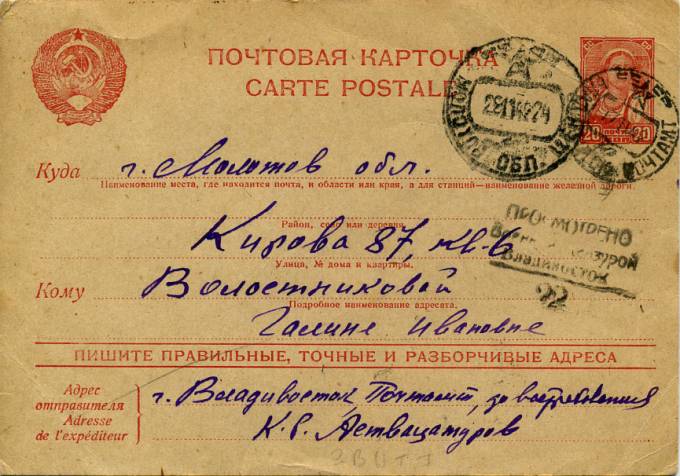 ПОЧТОВАЯ КАРТОЧКА
CARTE POSTALE
20 20
Куда г. Молотов обл.
Наименование места, где находится почта, и области или края, а для станций—наименование железной дороги.
Район, село или деревня.
Кирова 87, кв-6
Улица, № дома и квартиры.
Кому Волостниковой
Подробное наименование адресата.
Галине Ивановне
ПРОСМОТРЕНО
Военной Цензурой
Владивосток
22
ПИШИТЕ ПРАВИЛЬНЫЕ, ТОЧНЫЕ И РАЗБОРЧИВЫЕ АДРЕСА
Адрес
отправителя
Adresse
de l'expéditeur
г. Владивосток Почтамт, до востребования
К. Г. Аствацатуров